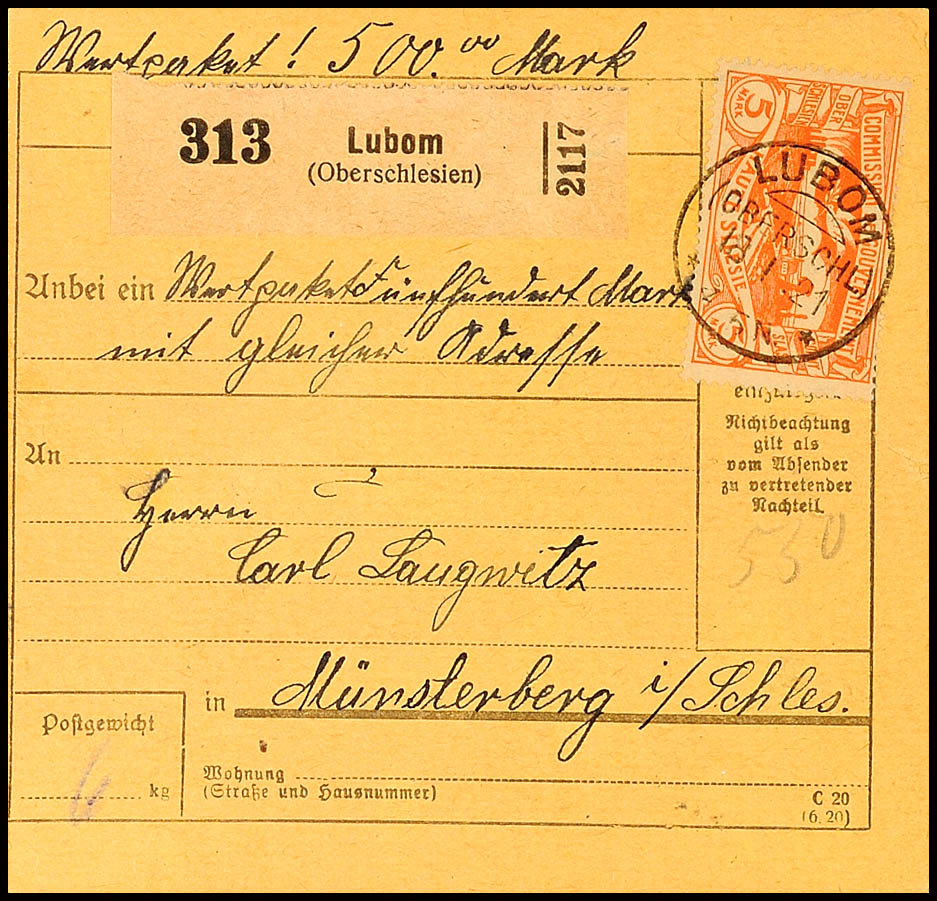 Wertpaket! 500.00 Mark
313 Lubom
(Oberschlesien)
2117
5 MARK
OBER
SCHLESIEN
COMMISSION
HAUTE SILESIE
LUBOM
(OBERSCHL.)
1 21
5 N
Anbei ein Wertpaket Fünfhundert Mark
mit gleicher Adresse
Nichtbeachtung
gilt als
vom Absender
zu vertretender
Nachteil.
550
An
Herrn
Carl Langwitz
in Münsterberg i/Schles.
Postgewicht
kg
Wohnung
(Straße und Hausnummer)
C 20
(6.20)